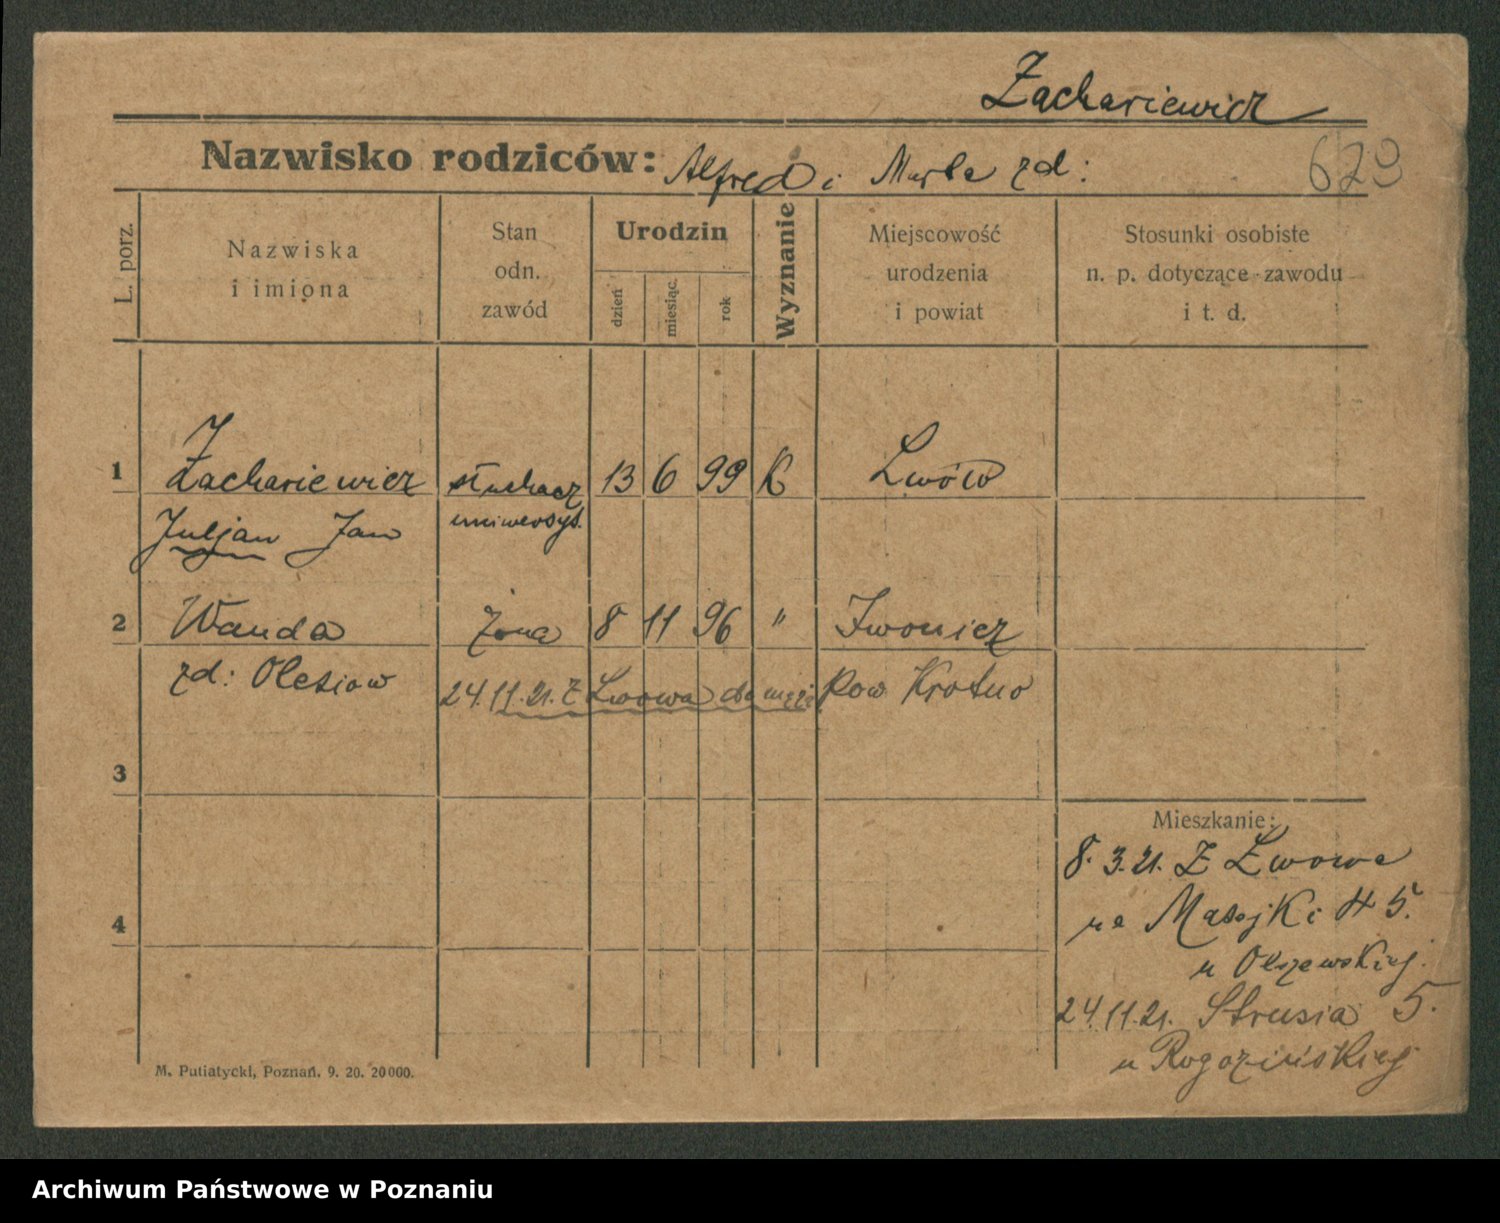 Zachariewicz
Nazwisko rodziców: Alfred i Marta zd:
629
L. porz.
Nazwiska
i imiona
Stan
odn.
zawód
Urodzin
dzień
miesiąc
rok
Wyznanie
Miejscowość
urodzenia
i powiat
Stosunki osobiste
n. p. dotyczące zawodu
i t. d.
1 Zachariewicz słuchacz 13 6 99 K Lwów
Juljan Jan uniwersyt.
2 Wanda żona 8 11 96 " Iwonicz
zd: Olesiow 24.11.21. Z Lwowa do męża Pow Krosno
3
4
Mieszkanie:
8.3.21. Z Lwowa
na Matejki 45.
u Olszewskiej.
24.11.21. Strusia 5.
u Rogozińskiej
M. Putiatycki, Poznań. 9. 20. 20000.
Archiwum Państwowe w Poznaniu